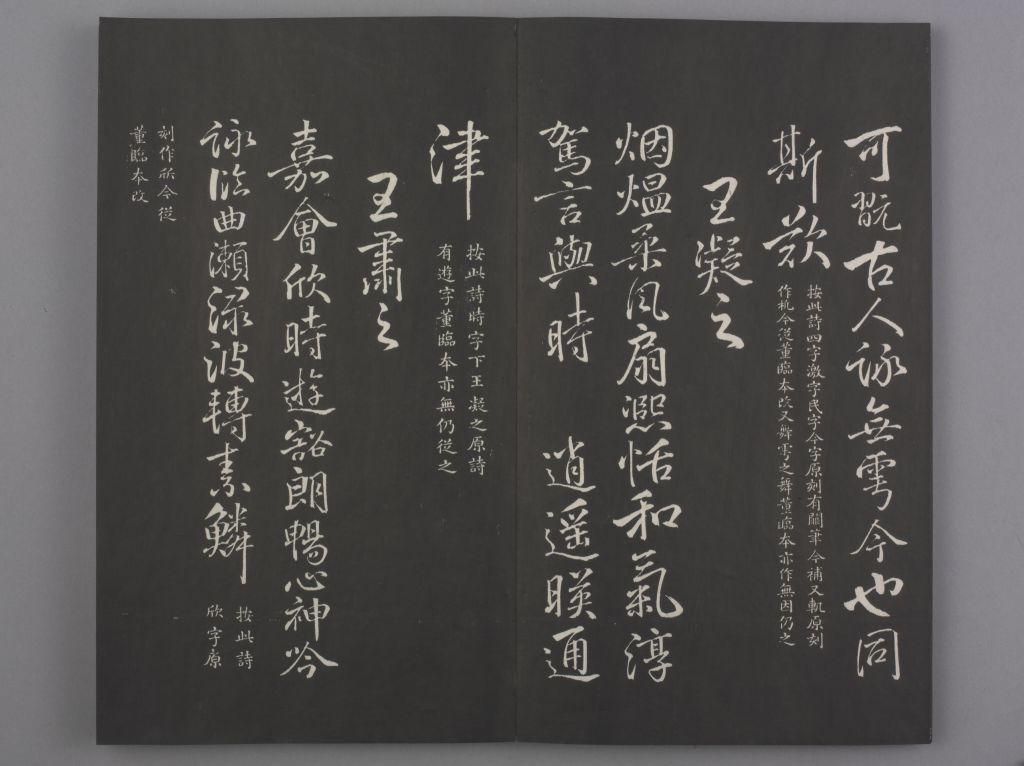 可翫古人詠無雩今也同
斯歎
按此詩四字激字民字今字原刻有闕筆今補又軌原刻
作軏今從董臨本改又舞雩之舞董臨本亦作無因仍之
王凝之
烟熅柔風扇熙恬和氣淳
駕言與時 逍遥暎通
津
按此詩時字下王凝之原詩
有遊字董臨本亦無仍從之
王肅之
嘉會欣時遊豁朗暢心神吟
詠臨曲瀨渌波轉素鱗
按此詩
欣字原
刻作㰟今從
董臨本改